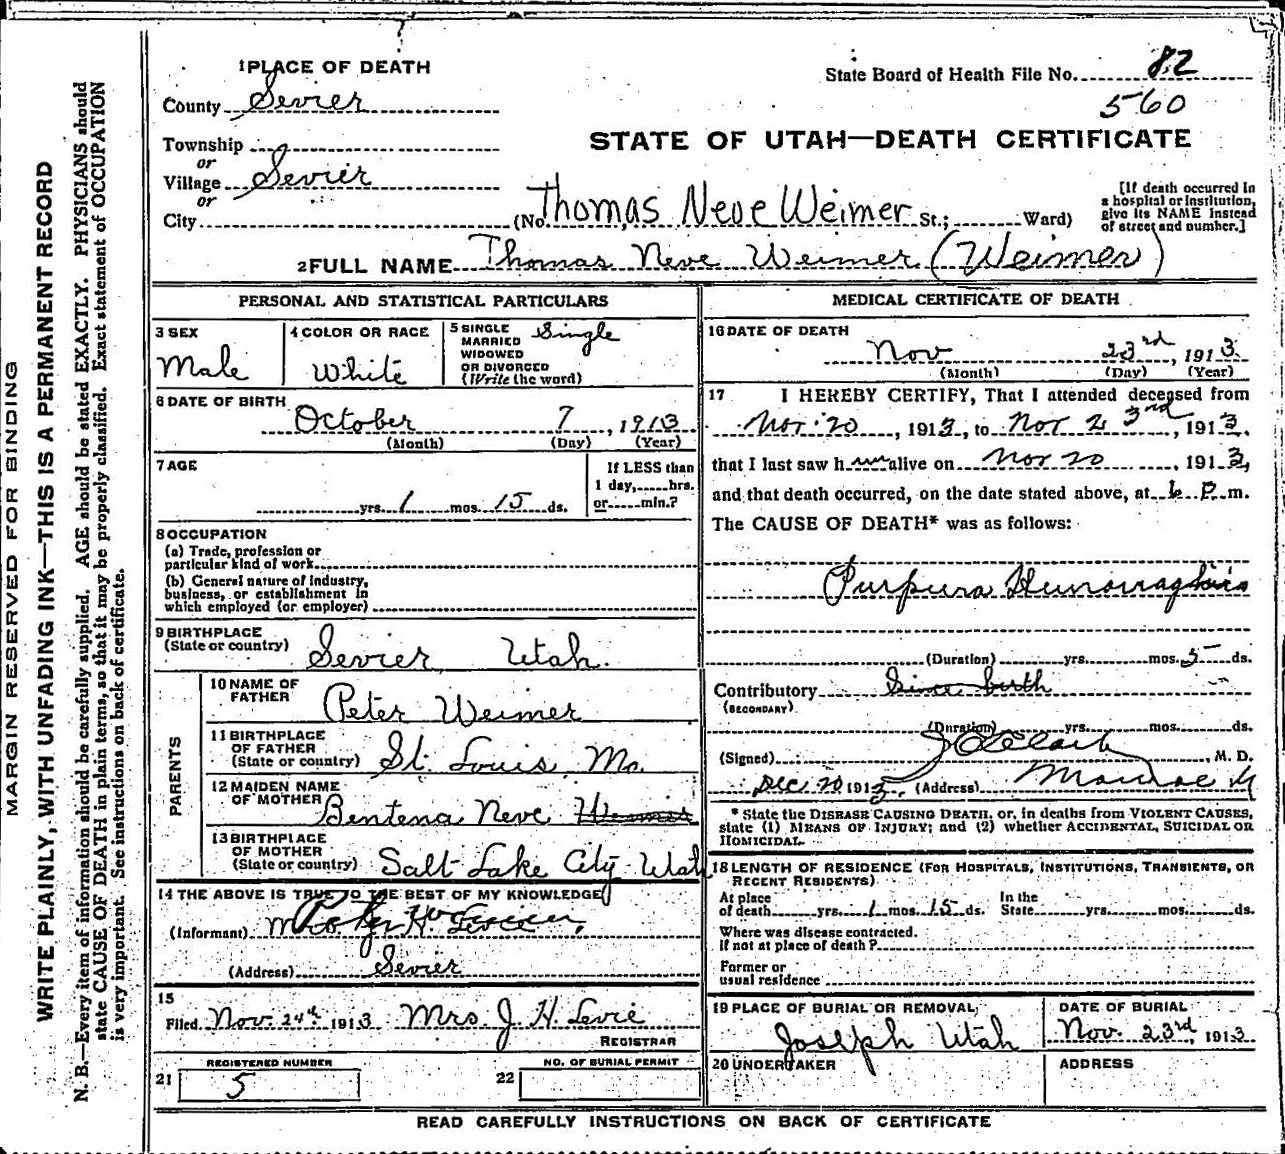 1 PLACE OF DEATH
State Board of Health File No. 82
560
County Sevier
STATE OF UTAH—DEATH CERTIFICATE
Township
or
Village Sevier
or
City (No. Thomas Neve Weimer St.; Ward)
[If death occurred in
a hospital or institution,
give its NAME instead
of street and number.]
2 FULL NAME Thomas Neve Weimer (Weimer)
PERSONAL AND STATISTICAL PARTICULARS
3 SEX
Male
4 COLOR OR RACE
White
5 SINGLE
MARRIED
WIDOWED
OR DIVORCED
(Write the word)
Single
6 DATE OF BIRTH
October 7, 1913
(Month) (Day) (Year)
7 AGE
yrs. 1 mos. 15 ds.
If LESS than
1 day, hrs.
or min.?
8 OCCUPATION
(a) Trade, profession or
particular kind of work
(b) General nature of industry,
business, or establishment in
which employed (or employer)
9 BIRTHPLACE
(State or country) Sevier Utah.
PARENTS
10 NAME OF
FATHER Peter Weimer
11 BIRTHPLACE
OF FATHER
(State or country) St. Louis, Mo.
12 MAIDEN NAME
OF MOTHER Bentena Neve Weimer
13 BIRTHPLACE
OF MOTHER
(State or country) Salt Lake City Utah
14 THE ABOVE IS TRUE TO THE BEST OF MY KNOWLEDGE
(Informant)
(Address) Sevier
15
Filed Nov. 24th 1913 Mrs. J. H. Levie
REGISTRAR
REGISTERED NUMBER
21 5
NO. OF BURIAL PERMIT
22
MEDICAL CERTIFICATE OF DEATH
16 DATE OF DEATH
Nov 23rd, 1913
(Month) (Day) (Year)
17 I HEREBY CERTIFY, That I attended deceased from
Nov. 20, 1913, to Nov 23rd, 1913,
that I last saw him alive on Nov 20, 1913,
and that death occurred, on the date stated above, at 6 P. m.
The CAUSE OF DEATH* was as follows:
Purpura
(Duration) yrs. mos. 5 ds.
Contributory Since birth
(SECONDARY)
(Duration) yrs. mos. ds.
(Signed) M. D.
Dec 20 1913, (Address) Monroe U
* State the DISEASE CAUSING DEATH, or, in deaths from VIOLENT CAUSES,
state (1) MEANS OF INJURY; and (2) whether ACCIDENTAL, SUICIDAL OR
HOMICIDAL.
18 LENGTH OF RESIDENCE (FOR HOSPITALS, INSTITUTIONS, TRANSIENTS, OR
RECENT RESIDENTS)
At place
of death yrs. 1 mos. 15 ds.
In the
State yrs. mos. ds.
Where was disease contracted.
If not at place of death?
Former or
usual residence
19 PLACE OF BURIAL OR REMOVAL
Joseph Utah
DATE OF BURIAL
Nov. 23rd, 1913
20 UNDERTAKER
ADDRESS
READ CAREFULLY INSTRUCTIONS ON BACK OF CERTIFICATE
MARGIN RESERVED FOR BINDING
WRITE PLAINLY, WITH UNFADING INK—THIS IS A PERMANENT RECORD
N. B.—Every item of information should be carefully supplied. AGE should be stated EXACTLY. PHYSICIANS should
state CAUSE OF DEATH in plain terms, so that it may be properly classified. Exact statement of OCCUPATION
is very important. See instructions on back of certificate.